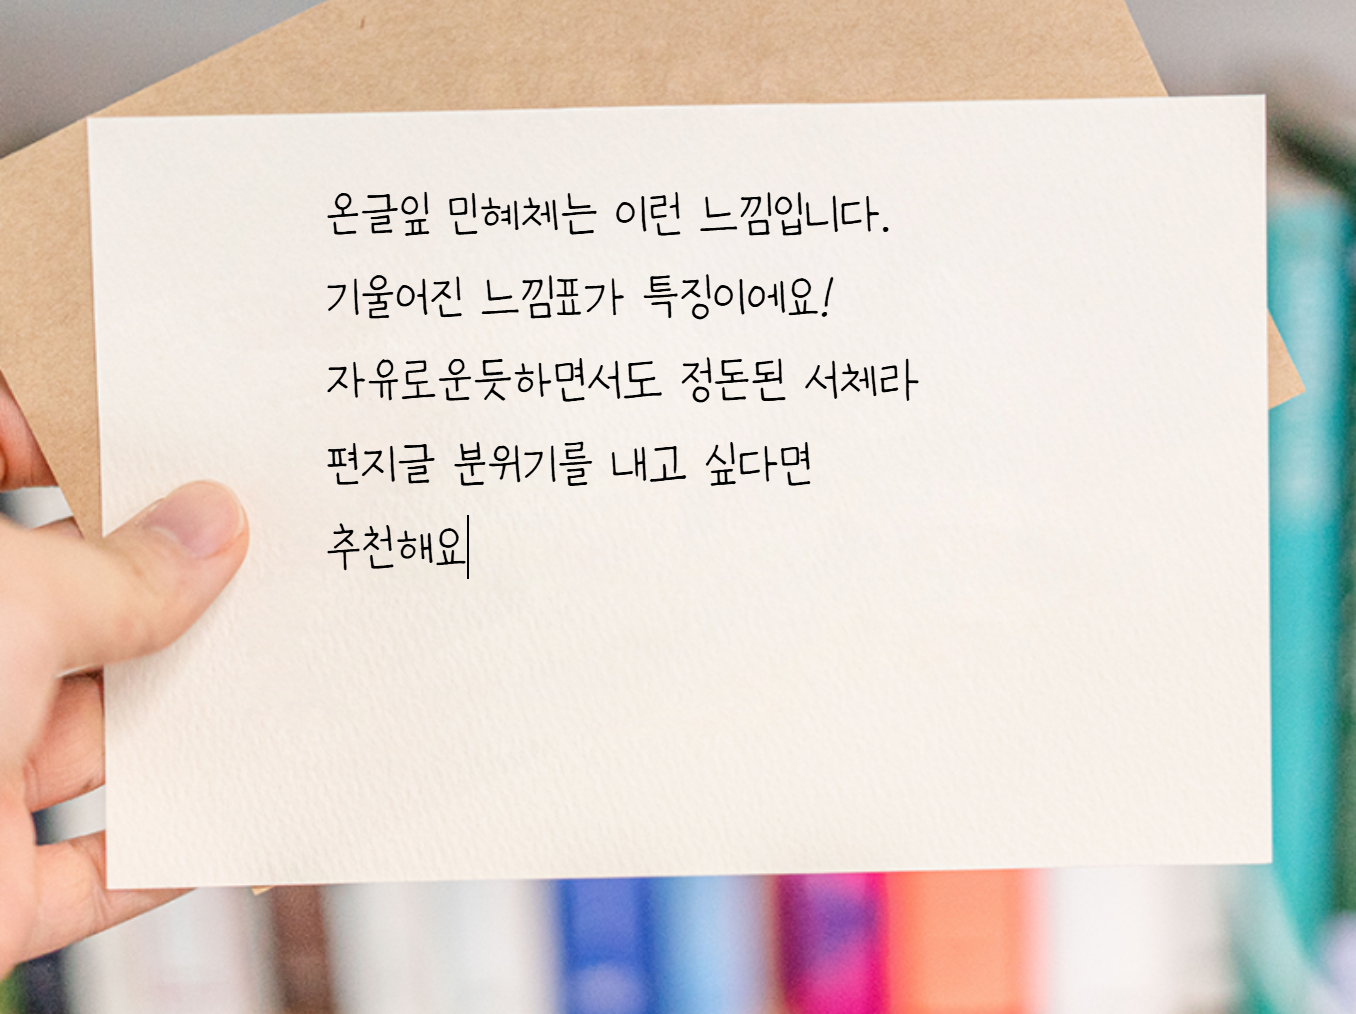 온글잎 민혜체는 이런 느낌입니다.
기울어진 느낌표가 특징이에요!
자유로운듯하면서도 정돈된 서체라
편지글 분위기를 내고 싶다면
추천해요